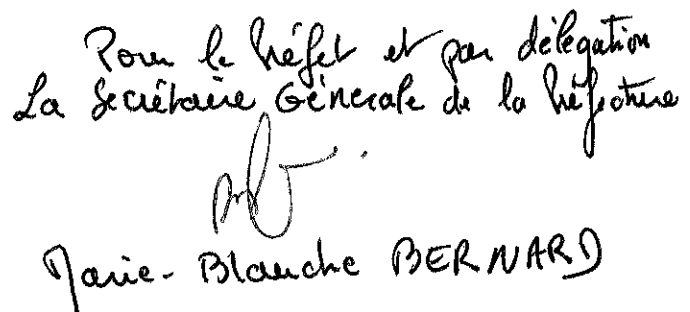 Pour le Préfet et par délégation
La Secrétaire Générale de la Préfecture
Marie-Blanche BERNARD